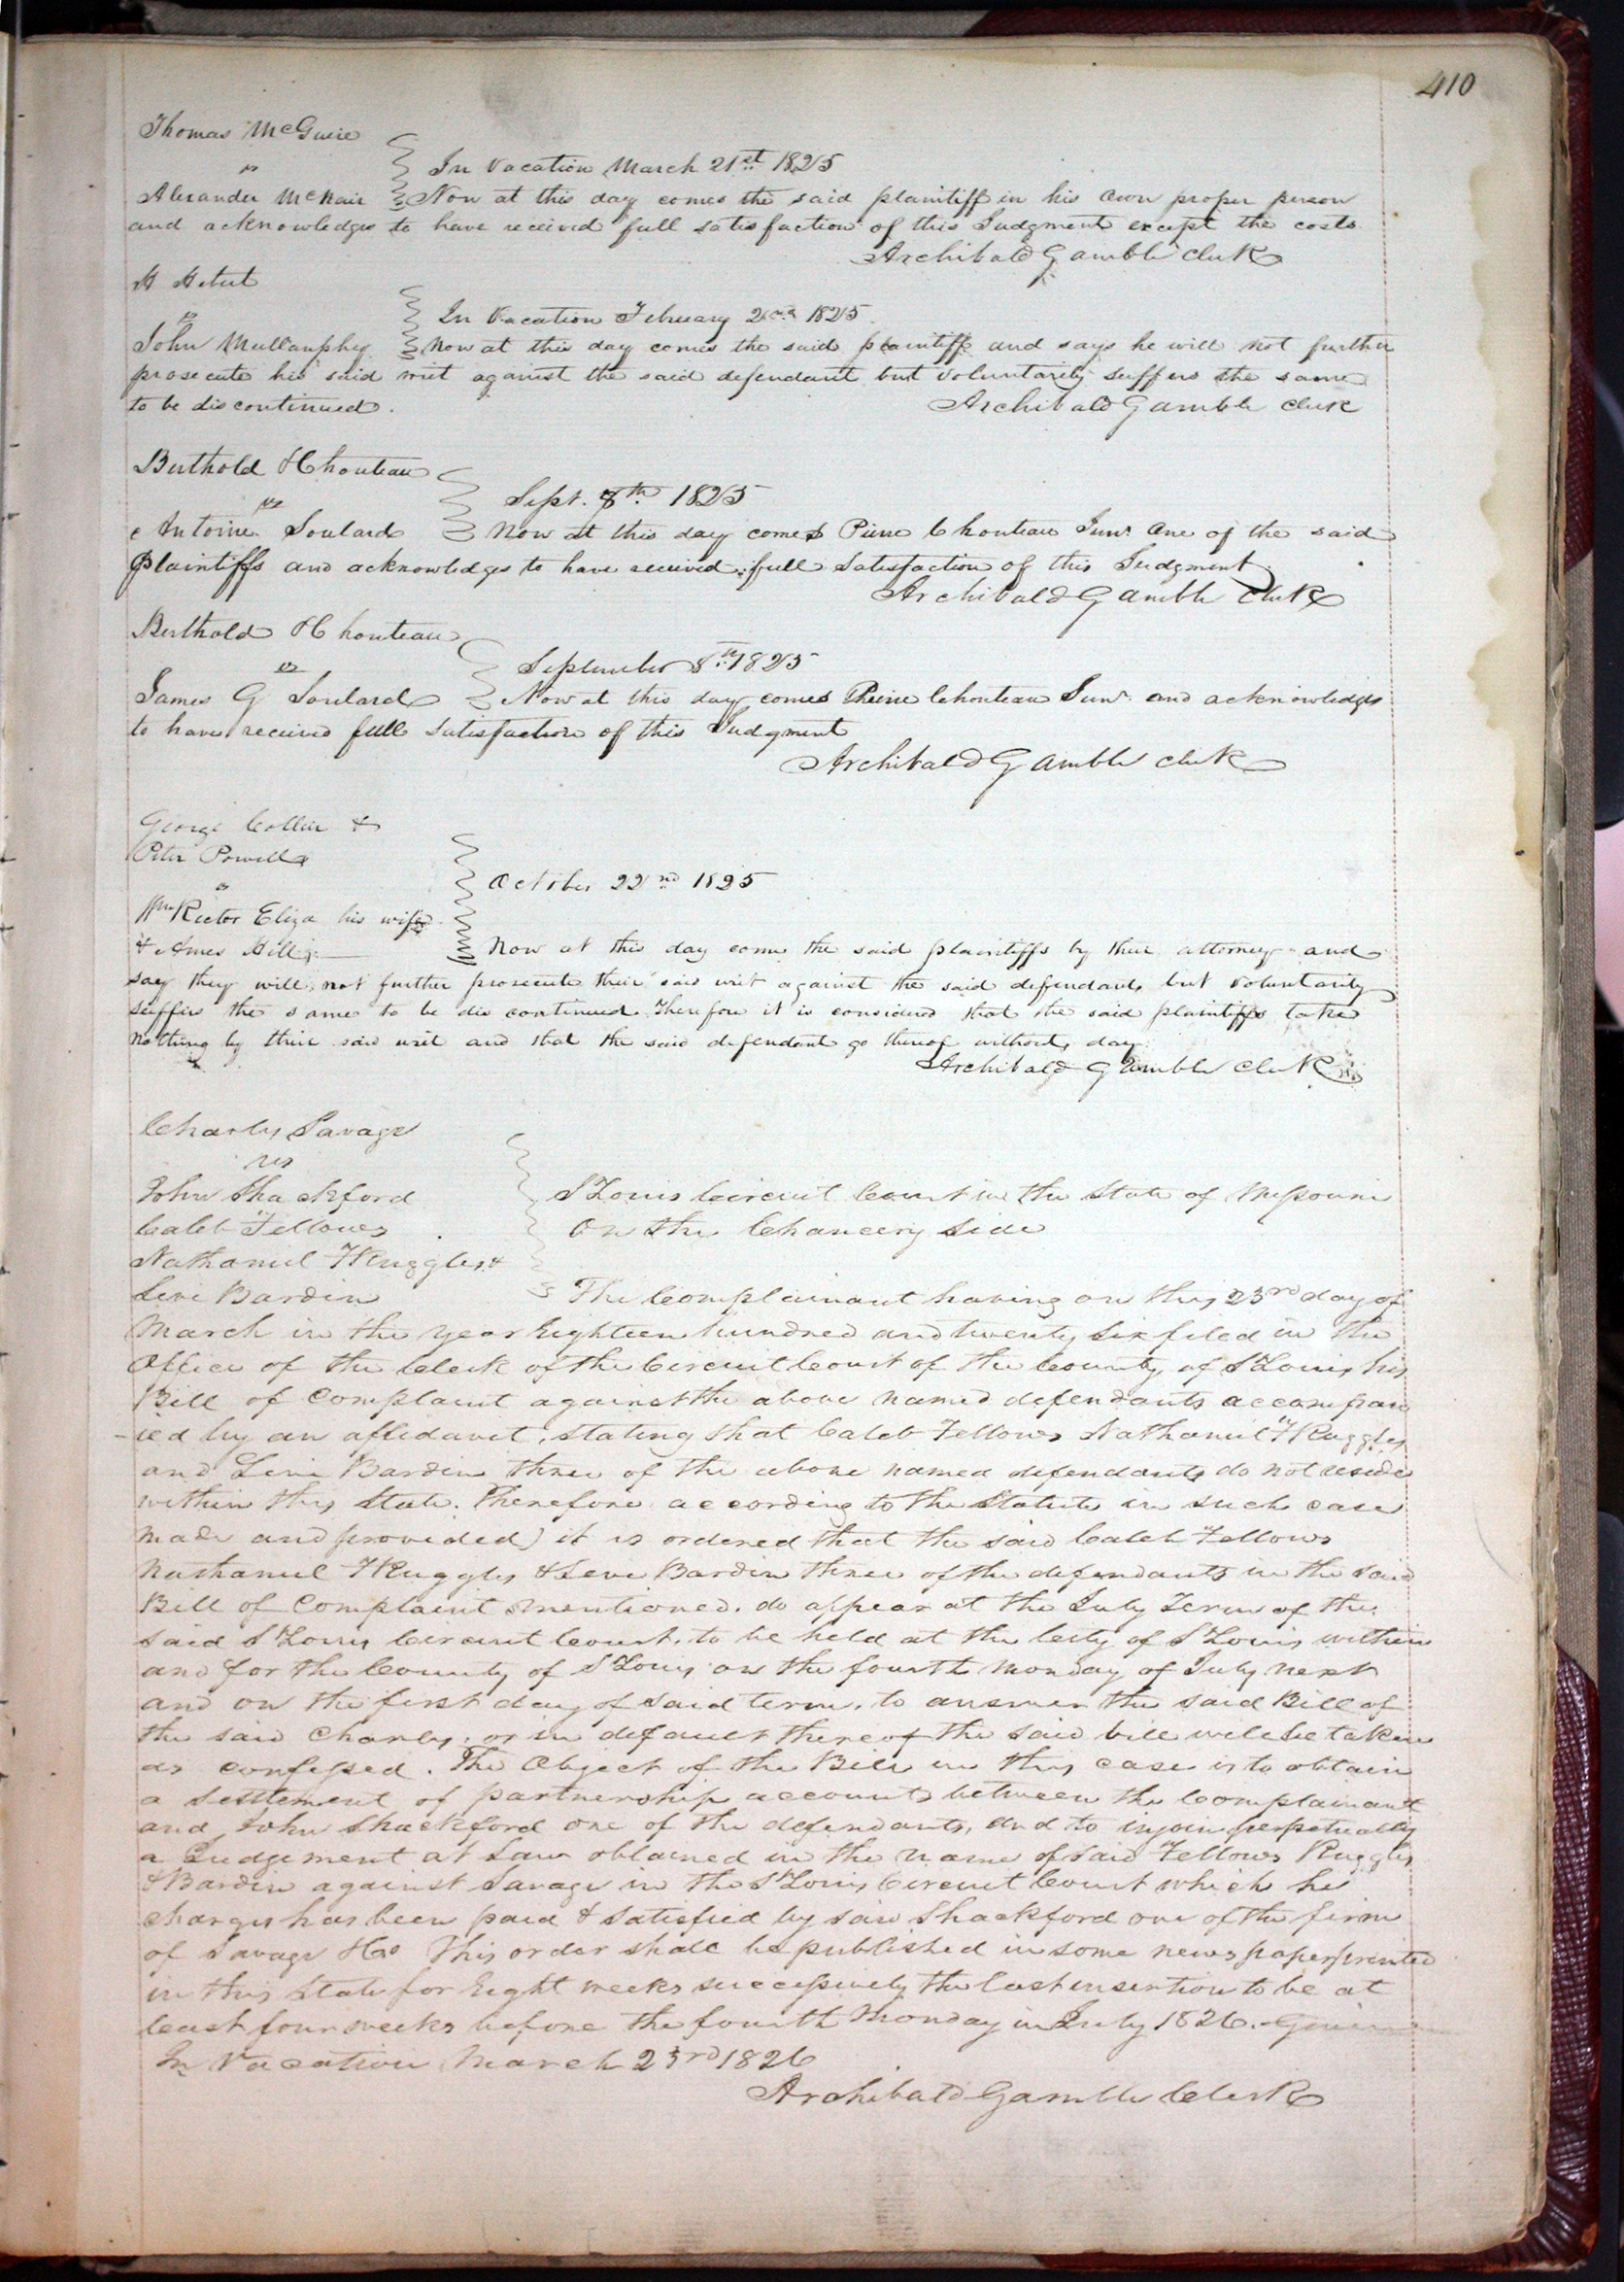 410
Thomas McGuire
vs
In Vacation March 21st 1825
Alexander McNair Now at this day comes the said plaintiff in his own proper person
and acknowledges to have received full satisfaction of this Judgment except the costs
Archibald Gamble Clerk
vs
In Vacation February 2nd 1825
John Mullanphy Now at this day comes the said plaintiff and says he will not further
prosecute his said writ against the said defendant but voluntarily suffers the same
to be discontinued.
Archibald Gamble Clerk
Berthold & Chouteau
vs
Sept. 8th 1825
Antoine Soulard Now at this day comes Pierre Chouteau Junr. one of the said
Plaintiffs and acknowledges to have received full Satisfaction of this Judgment
Archibald Gamble Clerk
Berthold & Chouteau
vs
September 8th 1825
James G Soulard Now at this day comes Pierre Chouteau Junr. and acknowledges
to have received full satisfaction of this Judgment
Archibald Gamble Clerk
George Collier &
Peter Powell
vs
October 22nd 1825
Wm Rector Eliza his wife
& Hill Now at this day come the said plaintiffs by their attorney and
say they will not further prosecute their said writ against the said defendants but voluntarily
suffer the same to be discontinued Therefore it is considered that the said plaintiffs take
nothing by their said writ and that the said defendants go thereof without day
Archibald Gamble Clerk
Charles Savage
vs
John Shackford St Louis Circuit Court in the State of Missouri
Caleb Fellows On the Chancery Side
Nathaniel F Ruggles &
Levi Bardin The Complainant having on this 23rd day of
March in the year Eighteen hundred and twenty six filed in the
Office of the Clerk of the Circuit Court of the County of St Louis, his
Bill of Complaint against the above named defendants accompan
-ied by an affidavit, stating that Caleb Fellows Nathaniel F Ruggles
and Levi Bardin three of the above named defendants do not reside
within this State. Therefore according to the Statute in such case
made and provided) it is ordered that the said Caleb Fellows
Nathaniel F Ruggles & Levi Bardin three of the defendants in the said
Bill of Complaint mentioned. do appear at the July Term of the
said St Louis Circuit Court, to be held at the City of St Louis within
and for the County of St Louis on the fourth Monday of July next
and on the first day of said term, to answer the said Bill of
the said Charles, or in default thereof the said bill will be taken
as confessed. The Object of the Bill in this case is to obtain
a Settlement of partnership accounts between the Complainant
and John Shackford one of the defendants, and to injoin perpetually
a Judgement at Law obtained in the name of said Fellows Ruggles
& Bardin against Savage in the St Louis Circuit Court which he
charges has been paid & satisfied by said Shackford one of the firm
of Savage & Co This order shall be published in some newspaper printed
in this State for Eight weeks successively the last insertion to be at
least four weeks before the fourth Monday in July 1826. Given
In Vacation March 23rd 1826
Archibald Gamble Clerk